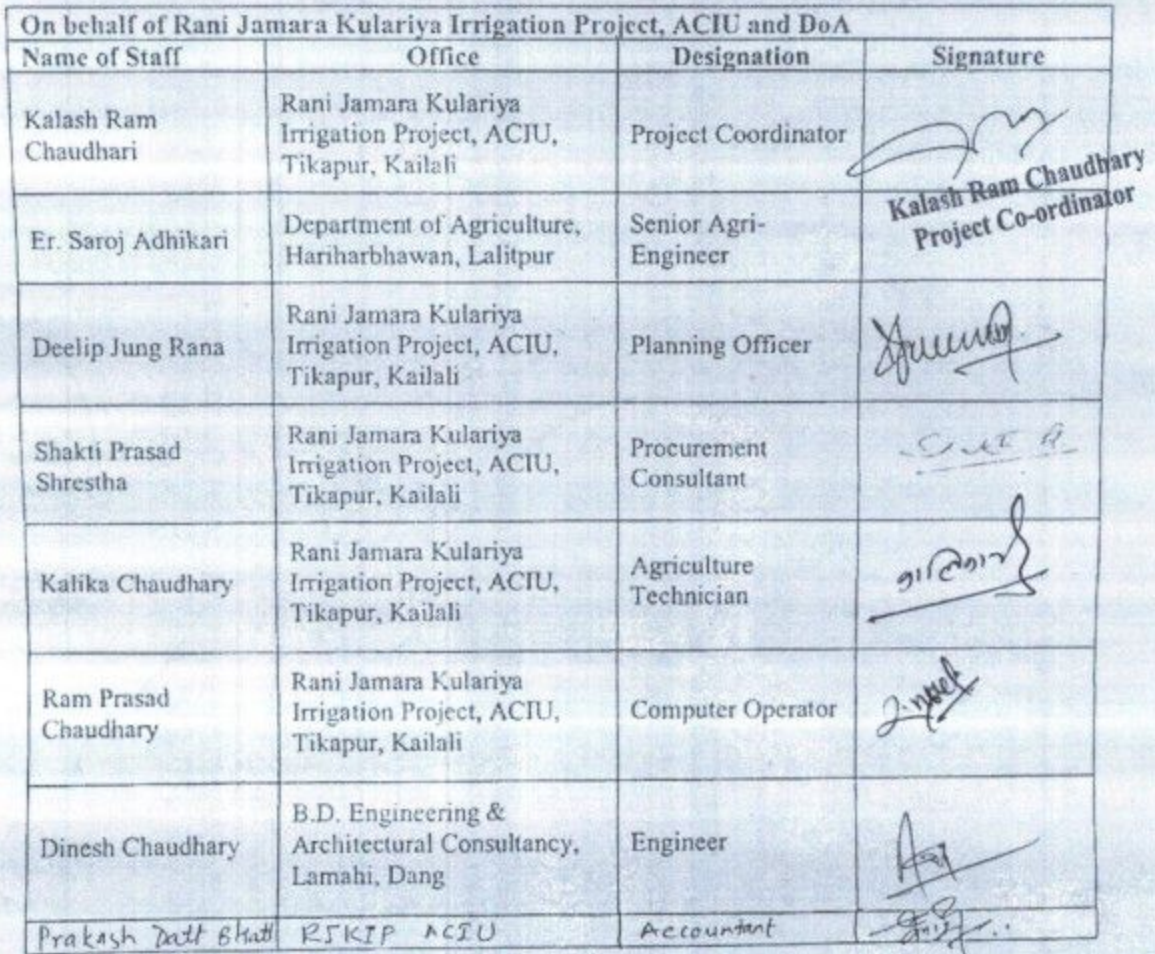 On behalf of Rani Jamara Kulariya Irrigation Project, ACIU and DoA
Name of Staff Office Designation Signature
Kalash Ram
Chaudhari
Rani Jamara Kulariya
Irrigation Project, ACIU,
Tikapur, Kailali
Project Coordinator
Kalash Ram Chaudhary
Project Co-ordinator
Er. Saroj Adhikari
Department of Agriculture,
Hariharbhawan, Lalitpur
Senior Agri-
Engineer
Deelip Jung Rana
Rani Jamara Kulariya
Irrigation Project, ACIU,
Tikapur, Kailali
Planning Officer
Shakti Prasad
Shrestha
Rani Jamara Kulariya
Irrigation Project, ACIU,
Tikapur, Kailali
Procurement
Consultant
Kalika Chaudhary
Rani Jamara Kulariya
Irrigation Project, ACIU,
Tikapur, Kailali
Agriculture
Technician
Ram Prasad
Chaudhary
Rani Jamara Kulariya
Irrigation Project, ACIU,
Tikapur, Kailali
Computer Operator
Dinesh Chaudhary
B.D. Engineering &
Architectural Consultancy,
Lamahi, Dang
Engineer
Prakash Datt Bhatt RJKIP ACIU Accountant